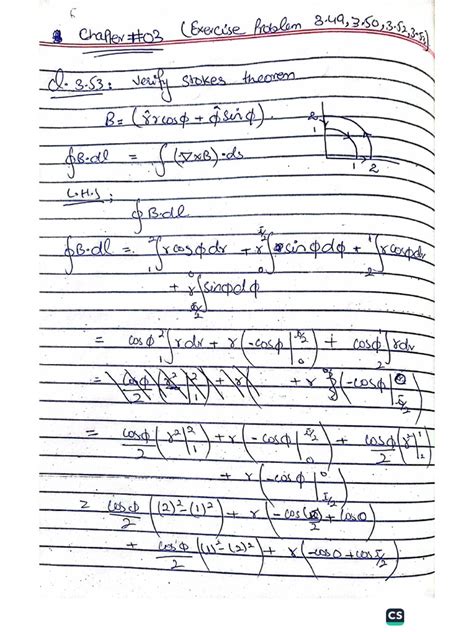 6
Chapter #03 (Exercise Problem 3.49, 3.50, 3.52, 3.53)
Q. 3.53: Verify Stokes theorem
B = (r̂rcosϕ + ϕ̂sinϕ).
2
1
1 2
∮B·dl = ∫(∇×B)·ds
L.H.S;
∮B·dl
∮B·dl = ₁∫² rcosϕdr + r ₀∫^(π/2) sinϕdϕ + ₂∫¹ rcosϕdr
+ r _(π/2)∫⁰ sinϕdϕ
= cosϕ ₁∫² rdr + r(-cosϕ|₀^(π/2)) + cosϕ ₂∫¹ rdr
+ r (-cosϕ|_(π/2)^0)
= cosϕ/2 (r²|₁²) + r(-cosϕ|₀^(π/2)) + cosϕ/2 (r²|₂¹)
+ r(-cosϕ|_(π/2)^0)
= cosϕ/2 ((2)²-(1)²) + r(-cos π/2 + cos0)
+ cosϕ/2 ((1)²-(2)²) + r(-cos0 + cos π/2)
CS